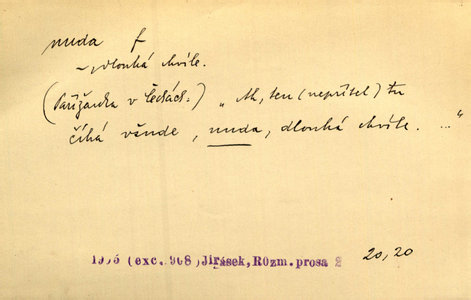 nuda f
~, dlouhá chvíle.
(Pařížanka v Čechách.) „Ah, ten (nepřítel) tu
číhá všude, nuda, dlouhá chvíle. ..."
1905 (exc. 908) Jirásek, Rozm. prosa 2 20,20